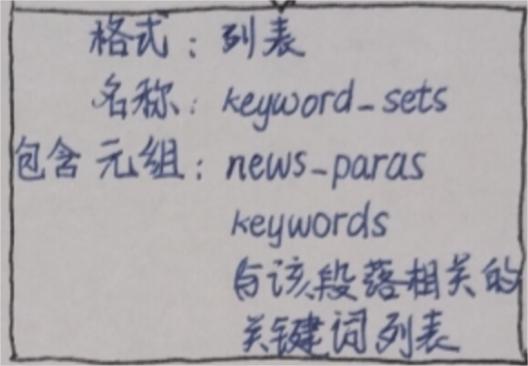 格式：列表
名称：keyword_sets
包含元组：news_paras
keywords
与该段落相关的
关键词列表